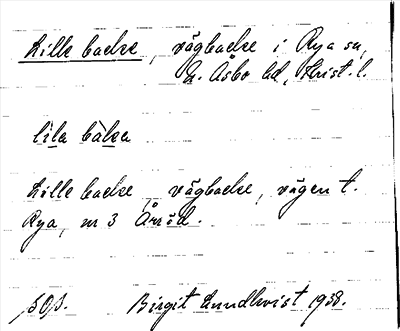 Lille backe, vägbacke i Rya sn,
N. Åsbo hd, Krist. l.
lìla bàka
Lille backe, vägbacke, vägen t.
Rya, nr 3 Öröd.
Birgit Lundkvist 1938.